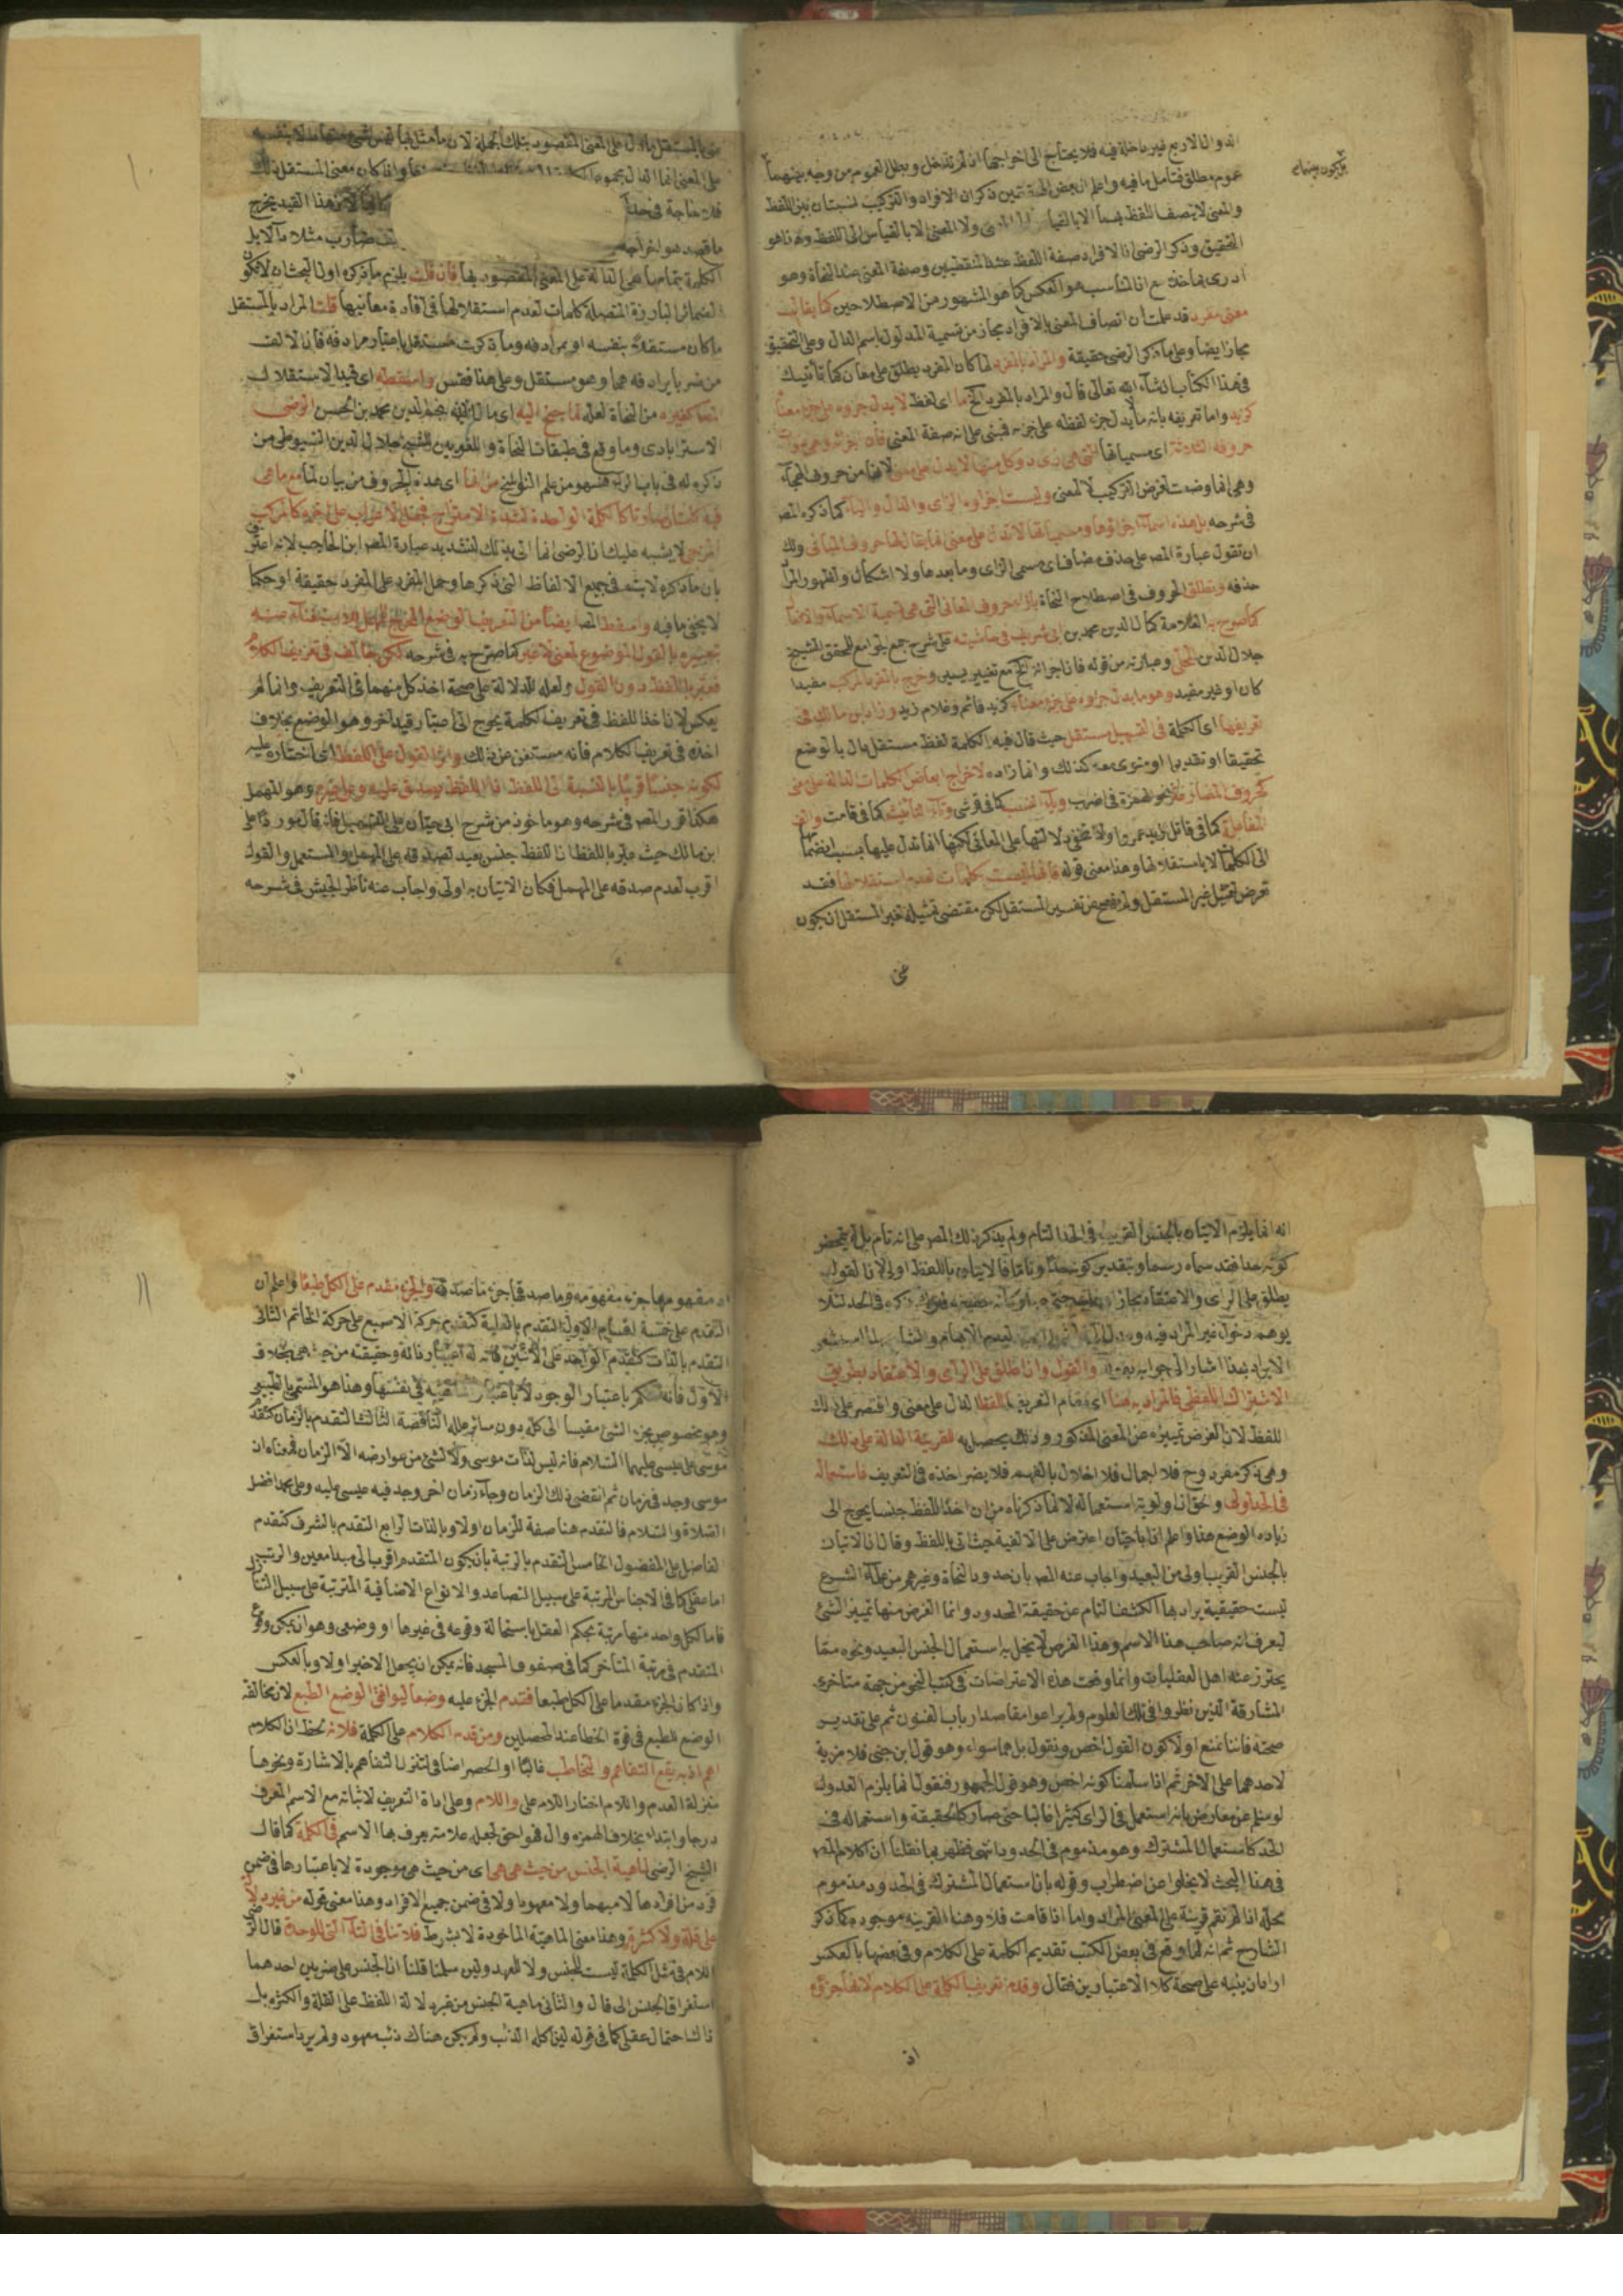 الدوال الاربع غير داخلة فيه فلا يحتاج الى اخراجها اذ لم تدخل وبطل العموم من وجه بينهما
عموم مطلق فتامل ما فيه واعلم ان بعض ذكر ان الافراد والتركيب نسبتان بين اللفظ
والمعنى لا يتصف اللفظ بهما الا بالقياس ولا المعنى الا بالقياس الى اللفظ وهذا هو
التحقيق وذكر الرضى ان الافراد صفة اللفظ عند المنطقيين وصفة المعنى عند النحاة وهو
ادرى بما حذف مع ان المناسب هو العكس كما هو المشهور من الاصطلاحين كما يقال
معنى مفرد قد علمت ان اتصاف المعنى بالافراد مجاز من تسمية المدلول باسم الدال وعلى التحقيق
مجاز ايضا وعلى ما ذكر الرضى حقيقة والمراد بالمفرد لما كان المفرد يطلق على معان كما تأتيك
فى هذا الكتاب ان شاء الله تعالى قال والمراد بالمفرد اى لفظ لا يدل جزوه على جزء معناه
كزيد واما تعريفه بانه ما لا يدل جزء لفظه على جزئه فمبنى على انه صفة المعنى فان
حروفه الثلاثة اى مسمياتها التى هى وكل منها لا يدل على معنى لانها من حروف الهجاء
وهى انما وضعت لغرض التركيب لا لمعنى وليست اجزاوه الزاى والدال والياء كما ذكره المص
فى شرحه بل هذه اسماء اجزائها ومسمياتها لا تدل على معنى انما يقال لها حروف المبانى ولك
ان تقول عبارة المص على حذف مضاف اى مسمى الزاى وما بعدها ولا اشكال ولظهور المراد
حذفه وتطلق الحروف فى اصطلاح النحاة بازاء حروف المعانى التى هى قسيمة الاسماء والافعال
كما صرح به العلامة كمال الدين محمد بن ابى شريف فى حاشيته على شرح جمع الجوامع للمحقق الشيخ
جلال الدين المحلى وعبارته من قوله فان اجزائه الخ مع تغيير يسير وخرج بالمفرد المركب مفيدا
كان او غير مفيد وهو ما يدل جزوه على جزء معناه كزيد قائم وغلام زيد وزاد ابن مالك فى
تعريفها اى الكلمة فى التسهيل مستقل حيث قال فيه الكلمة لفظ مستقل دال بالوضع
تحقيقا او تقديرا او منوى معه كذلك وانما زاده لاخراج ابعاض الكلمات الدالة على معنى
كحروف المضارعة نحو الهمزة فى اضرب وياء النسب كما فى قرشى وتاء التانيث كما فى قامت والف
المفاعلة كما فى قاتل زيد عمروا ولا تخفى دلالتها على المعانى لكنها انما تدل عليها بسبب انضمامها
الى الكلمات لا باستقلالها وهذا معنى قوله فانها ليست بكلمات لعدم استقلالها فقد
تعرض لتمثيل غير المستقل ولم يفصح عن تفسير المستقل لكن مقتضى تمثيله غير المستقل ان يكون
على المعنى انما الدال مجموع واذا كان معنى المستقل ذلك
فلا حاجة فى هذا القيد يخرج
ما قصد هو اخراجه ضارب مثلا
الكلمة بتمامها هى الدالة على المعنى المقصود بها فان قلت يلزم ما ذكره اولا البحث ان لا تكون
الضمائر البارزة المتصلة كلمات لعدم استقلالها فى افادة معانيها قلت المراد بالمستقل
ما كان مستقلا بنفسه او بمرادفه وما ذكرت مستقل باعتبار مرادفه فان الالف
من ضربا يرادفه هما وهو مستقل وعلى هذا فقس واسقطه اى قيد الاستقلال
المص كغيره من النحاة لعله لما جنح اليه اى مال نجم الدين محمد بن الحسن الرضى
الاسترابادى وما وقع فى طبقات النحاة واللغويين للشيخ جلال الدين السيوطى من
ذكره له فى باب الراء فسهو من علم التواريخ من انها اى هذه الحروف من بيان لما مع ما هى
فيه كلمتان صارتا كالكلمة الواحدة لشدة الامتزاج فجعل الاعراب على اخره كالمركب
المزجى لا يشبه عليك ان الرضى انما اتى بذلك لتشديد عبارة المص ابن الحاجب لانه اعترض
بان ما ذكره لا يتم فى جميع الالفاظ التى ذكرها وحمل المفرد على المفرد حقيقة او حكما
لا يخفى ما فيه واسقط المص ايضا من التعريف الوضع المخرج للمهمل للاستغناء عنه
بتعبيره بالقول الموضوع لمعنى لا غير كما صرح به فى شرحه لكن خالف فى تعريف الكلام
فعبر باللفظ دون القول ولعله للدلالة على صحة اخذ كل منهما فى التعريف وانما لم
يعكس لان اخذ اللفظ فى تعريف الكلمة يحوج الى اعتبار قيد اخر وهو الوضع بخلاف
اخذه فى تعريف الكلام فانه مستغن عن ذلك واثر القول على اللفظ اى اختاره عليه
لكونه جنسا قريبا بالنسبة الى اللفظ اذ اللفظ يصدق عليه وعلى غيره وهو المهمل
هكذا قرر المص فى شرحه وهو ماخوذ من شرح ابى حيان على التسهيل فانه قال مورد ا على
ابن مالك حيث عبر باللفظ ان اللفظ جنس بعيد لصدقه على المهمل والمستعمل والقول
اقرب لعدم صدقه على المهمل فكان الاتيان به اولى واجاب عنه ناظر الجيش فى شرحه
انه انما يلزم الاتيان بالجنس القريب فى الحد التام ولم يذكر ذلك المص على انه تام بل لم يتمحض
كونه حدا فقد سماه رسما وبتقدير كونه حدا وتاما فالاتيان باللفظ اولى لان القول
يطلق على الراى والاعتقاد مجازا ذكره فى الحد لئلا
يوهم دخول غير المراد فيه
الايراد بهذا اشار الى جوابه بقوله والقول وان اطلق على الراى والاعتقاد بطريق
الاشتراك اللفظى فالمراد به هنا اى مقام التعريف اللفظ الدال على معنى واقتصر على ذلك
اللفظ لان الغرض تمييزه عن المعنى المذكور وذلك يحصل به للقرينة الدالة على ذلك
وهى ذكر مفرد وح فلا اجمال فلا اخلال بالفهم فلا يضر اخذه فى التعريف فاستعماله
فى الحد اولى والحق ان اولوية استعماله لا لما ذكرناه من ان اخذ اللفظ جنسا يحوج الى
زيادة الوضع هذا واعلم ان ابا حيان اعترض على الالفية حيث اتى باللفظ وقال ان الاتيان
بالجنس القريب اولى من البعيد واجاب عنه المص بان حدود النحاة وغيرهم من علماء الشرع
ليست حقيقية يراد بها الكشف التام عن حقيقة المحدود وانما الغرض منها تمييز الشئ
ليعرف انه صاحب هذا الاسم وهذا الغرض لا يخل به استعمال الجنس البعيد ونحوه مما
يحترز عنه اهل العقليات وانما وقعت هذه الاعتراضات فى كتب النحو من جهة متاخرى
المشارقة الذين نظروا فى تلك العلوم ولم يراعوا مقاصد ارباب الفنون ثم على تقدير
صحته فاننا نمنع اولا كون القول اخص ونقول بل هما سواء وهو قول ابن جنى فلا مزية
لاحدهما على الاخر ثم انا سلمنا كونه اخص وهو قول الجمهور فنقول انما يلزم العدول
لو سلم عن معارض بانه استعمل فى الراى كثيرا غالبا حتى صار كالحقيقة واستعماله فى
الحد كاستعمال المشترك وهو مذموم فى الحدود انتهى فظهر بما نقلنا ان كلام المص
فى هذا البحث لا يخلوا عن اضطراب وقوله بان استعمال المشترك فى الحدود مذموم
محله اذا لم تقم قرينة على المعنى المراد واما اذا قامت فلا وهنا القرينة موجودة كما ذكر
الشارح ثم انه لما وقع فى بعض الكتب تقديم الكلمة على الكلام وفى بعضها بالعكس
اراد ان ينبه على صحة كلا الاعتبارين فقال وقدم تعريف الكلمة على الكلام لانها جزؤه
اذ
اذ مفهومها جزء مفهومه وما صدقها جزء ما صدقه والجزء مقدم على الكل طبعا واعلم ان
التقدم على خمسة اقسام الاول التقدم بالعلية كتقدم حركة الاصبع على حركة الخاتم الثانى
التقدم بالذات كتقدم الواحد على الاثنين فانه له اعتبار ذاته وحقيقته من حيث هى بخلاف
الاول فانه باعتبار الوجود لا باعتبار فى نفسها وهذا هو المسمى بالطبع
وهو مخصوص بجزء الشئ مقيسا الى كله دون سائر علله الناقصة الثالث التقدم بالزمان كتقدم
موسى على عيسى عليهما السلام فانه ليس لذات موسى ولا لشئ من عوارضه الا الزمان فمعناه ان
موسى وجد فى زمان ثم انقضى ذلك الزمان وجاء زمان اخر وجد فيه عيسى عليه وعلى محمد افضل
الصلاة والسلام فالتقدم هنا صفة للزمان اولا وبالذات الرابع التقدم بالشرف كتقدم
الفاضل على المفضول الخامس التقدم بالرتبة بان يكون المتقدم اقرب الى مبدا معين والرتب
اما عقلى كما فى الاجناس المرتبة على سبيل التصاعد والانواع الاضافية المترتبة على سبيل التنازل
فاما لكل واحد منها مرتبة يحكم العقل باستحالة وقوعه فى غيرها او وضعى وهو ان يمكن وقوع
المتقدم فى مرتبة المتاخر كما فى صفوف المسجد فانه يمكن ان يجعل الاخير اولا وبالعكس
واذا كان الجزء مقدما على الكل طبعا فقدم الجزء عليه وضعا ليوافق الوضع الطبع لان مخالفة
الوضع للطبع فى قوة الخطا عند المحصلين ومن قدم الكلام على الكلمة فلانه لحظ ان الكلام
اهم اذ به يقع التفاهم والتخاطب غالبا او الحصر اضافى لتنزل التفاهم بالاشارة ونحوها
منزلة العدم واللام اختار اللام على واللام وعلى اداة التعريف لاثباته مع الاسم المعرف
درجا وابتداء بخلاف الهمزة وال فهو احق بجعل علامة يعرف بها الاسم فى الكلمة كما قال
الشيخ الرضى لماهية الجنس من حيث هى هى اى من حيث هى موجودة لا باعتبارها فى ضمن
فرد من افرادها لا مبهما ولا معهودا ولا فى ضمن جميع الافراد وهذا معنى قوله من غير دلالة
على قلة ولا كثرة وهذا معنى الماهية الماخوذة لا بشرط فلا تنافى التاء التى للوحدة قال الرضى
اللام فى مثل الكلمة ليست للجنس ولا للعهد ولين سلمنا قلنا ان الجنس على ضربين احدهما
استغراق الجنس الى قال والثانى ماهية الجنس من غير دلالة اللفظ على القلة والكثرة بل
ذلك احتمال عقلى كما فى قوله لئن اكله الذئب ولم يكن هناك ذئب معهود ولم يرد استغراق